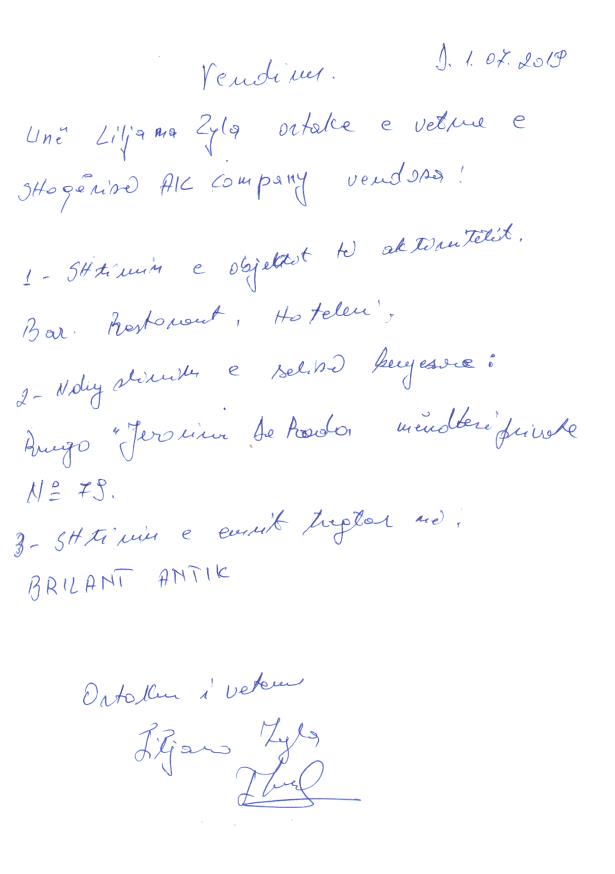 D. 1. 07. 2019
Vendim.
Unë Liljana Zyla ortake e vetme e
SHoqërisë AK Company vendosa!
1 - SHtimin e objektit të aktivitetit.
Bar. Restorant, Hoteleri,
2 - Ndryshimin e selisë kryesore:
Rruga "Jeronim De Rada
Nº 79.
3 - SHtimin e emrit tregtar në.
BRILANT ANTIK
Ortaku i vetem
Liljana Zyla